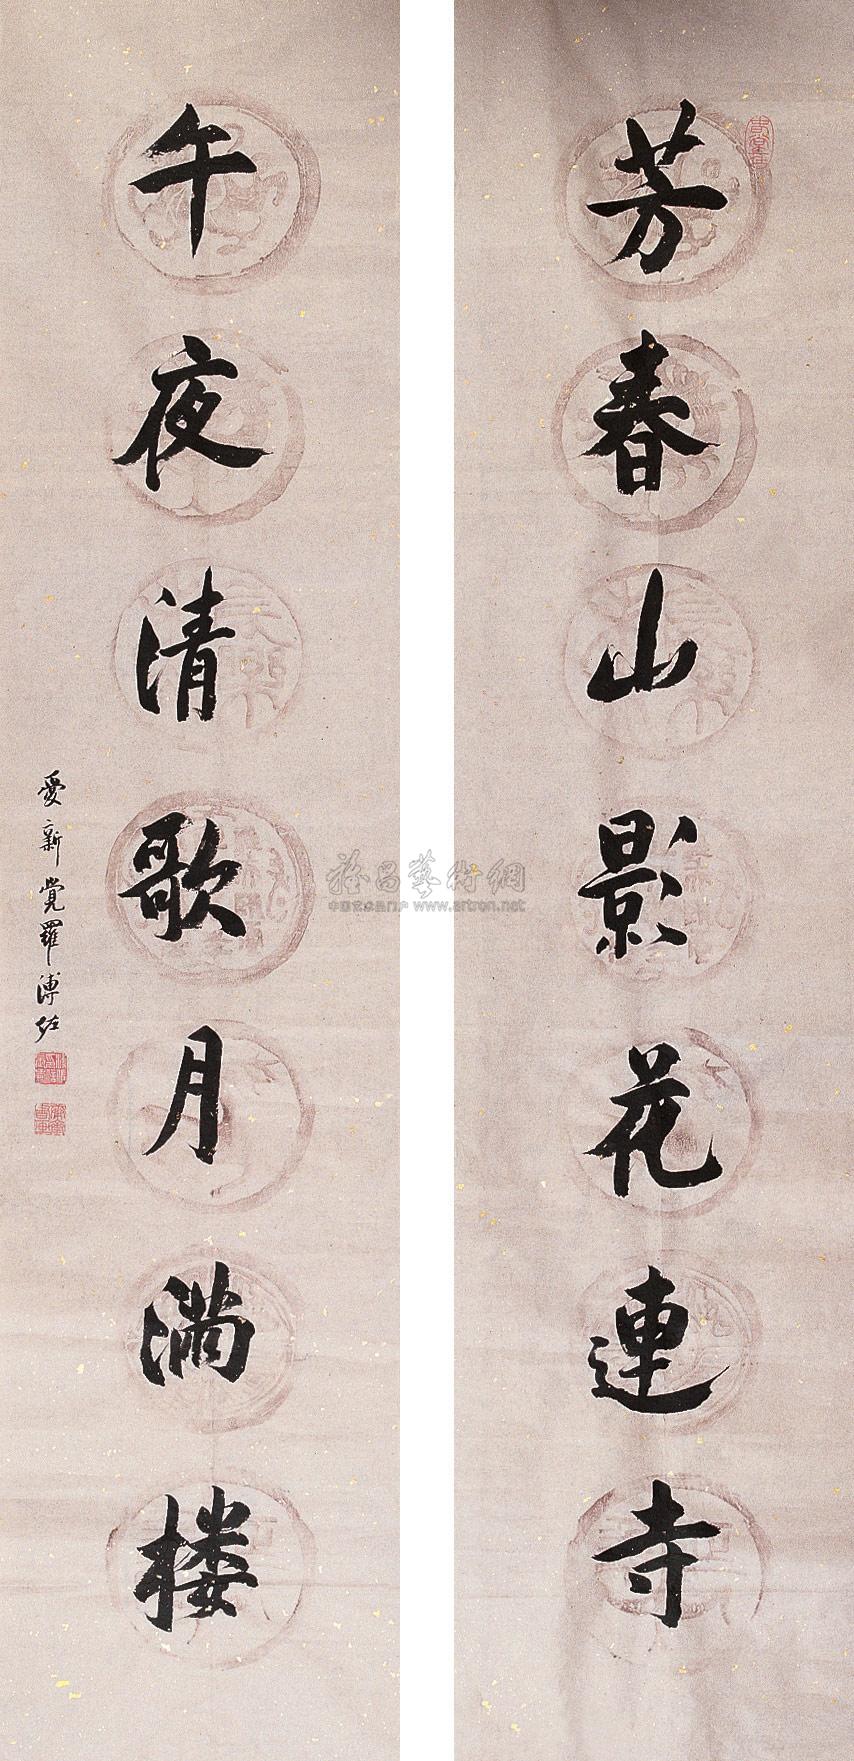 芳春山影花連寺
午夜清歌月満楼
愛新覺羅溥佐
雅昌藝術網
中国艺术品门户 www.artron.net